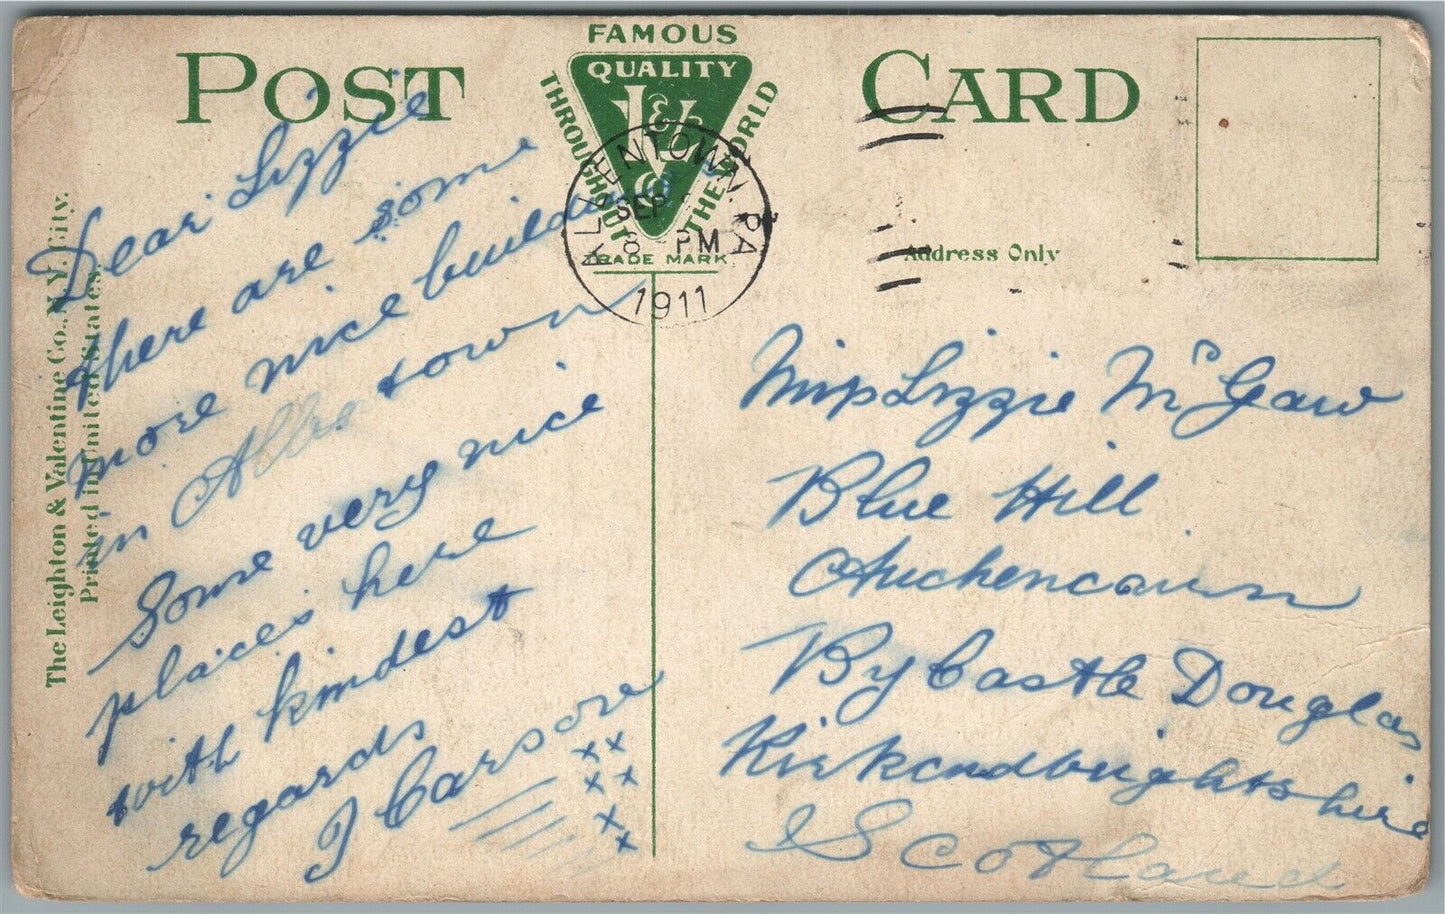 POST CARD
FAMOUS
QUALITY
THROUGHOUT THE WORLD
L & V
TRADE MARK
ALLENTOWN. PA
SEP
8 PM
1911
Address Only
The Leighton & Valentine Co., N.Y. City.
Printed in United States.
Dear Lizzie
there are some
more nice buildings
in town
Some very nice
places here
with kindest
regards
J Carsore
x x
x x
x
x
Miss Lizzie McGaw
Blue Hill
Auchencairn
By Castle Douglas
Kirkcudbrightshire
Scotland